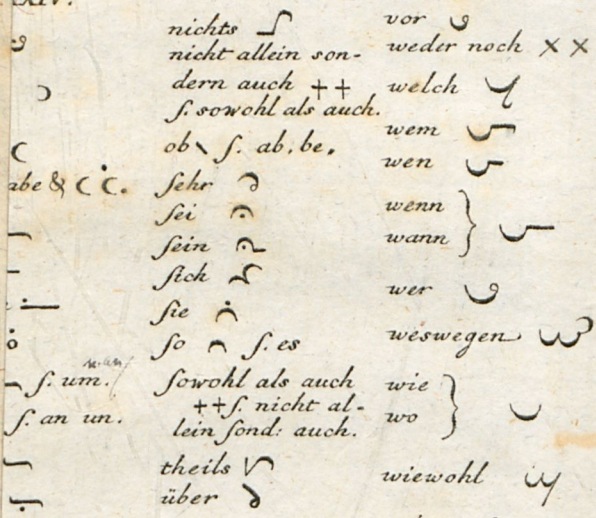 nichts
nicht allein son-
dern auch ++
ſ. sowohl als auch.
ob ſ. ab, be.
ſehr
ſei
ſein
ſich
ſie
ſo ſ. es
ſowohl als auch
++ ſ. nicht al-
lein ſond: auch.
theils
über
vor
weder noch ××
welch
wem
wen
wenn
wann
wer
weswegen
wie
wo
wiewohl
abe &
ſ. um.
ſ. an un.